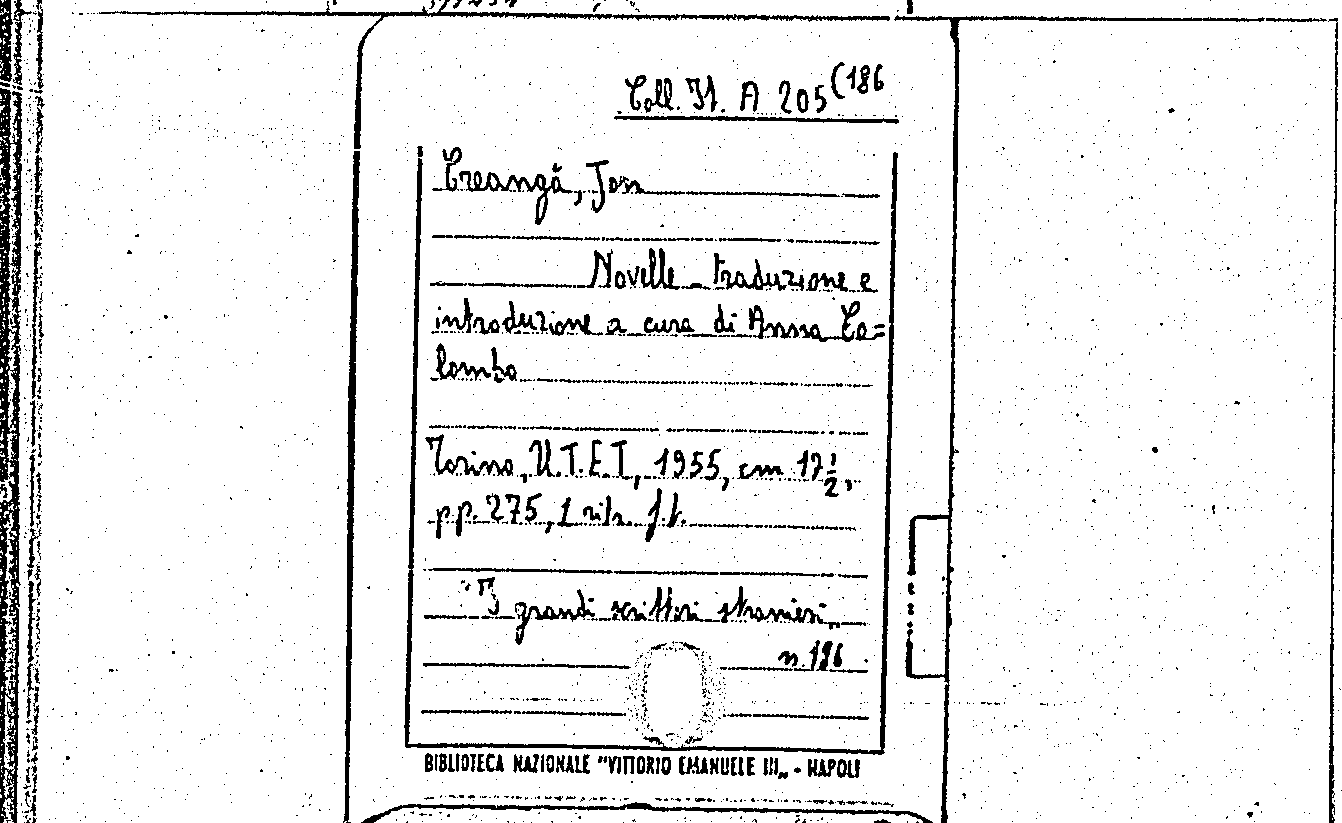 Coll. It. A 205(186
Creangă, Ion
Novelle - traduzione e
introduzione a cura di Anna Co=
lombo
Torino, U.T.E.T., 1955, cm 17 1/2,
pp. 275, 1 ritr. f.t.
"I grandi scrittori stranieri„
n. 186
BIBLIOTECA NAZIONALE "VITTORIO EMANUELE III„ - NAPOLI